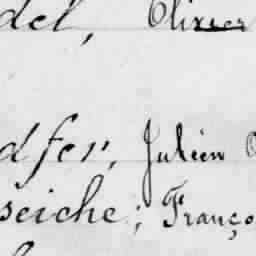 del, Olivier
dfer, Julien
seiche; Franço